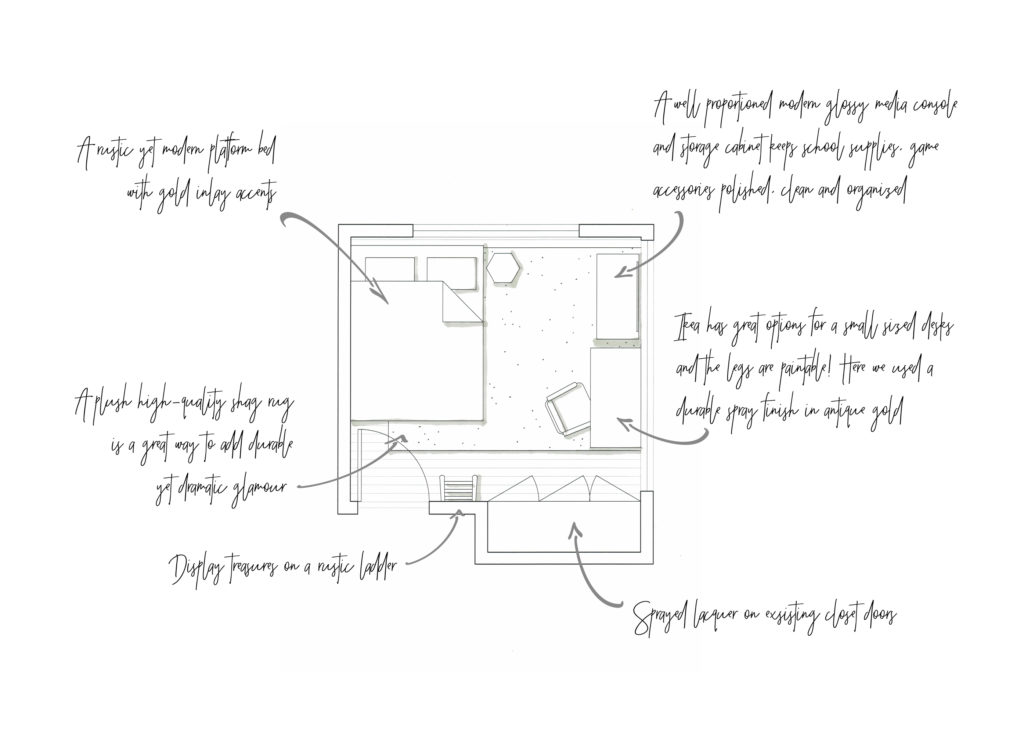 A rustic yet modern platform bed
with gold inlay accents
A well proportioned modern glossy media console
and storage cabinet keeps school supplies, game
accessories polished, clean and organized
Ikea has great options for a small sized desks
and the legs are paintable! Here we used a
durable spray finish in antique gold
A plush high-quality shag rug
is a great way to add durable
yet dramatic glamour
Display treasures on a rustic ladder
Sprayed lacquer on exsisting closet doors